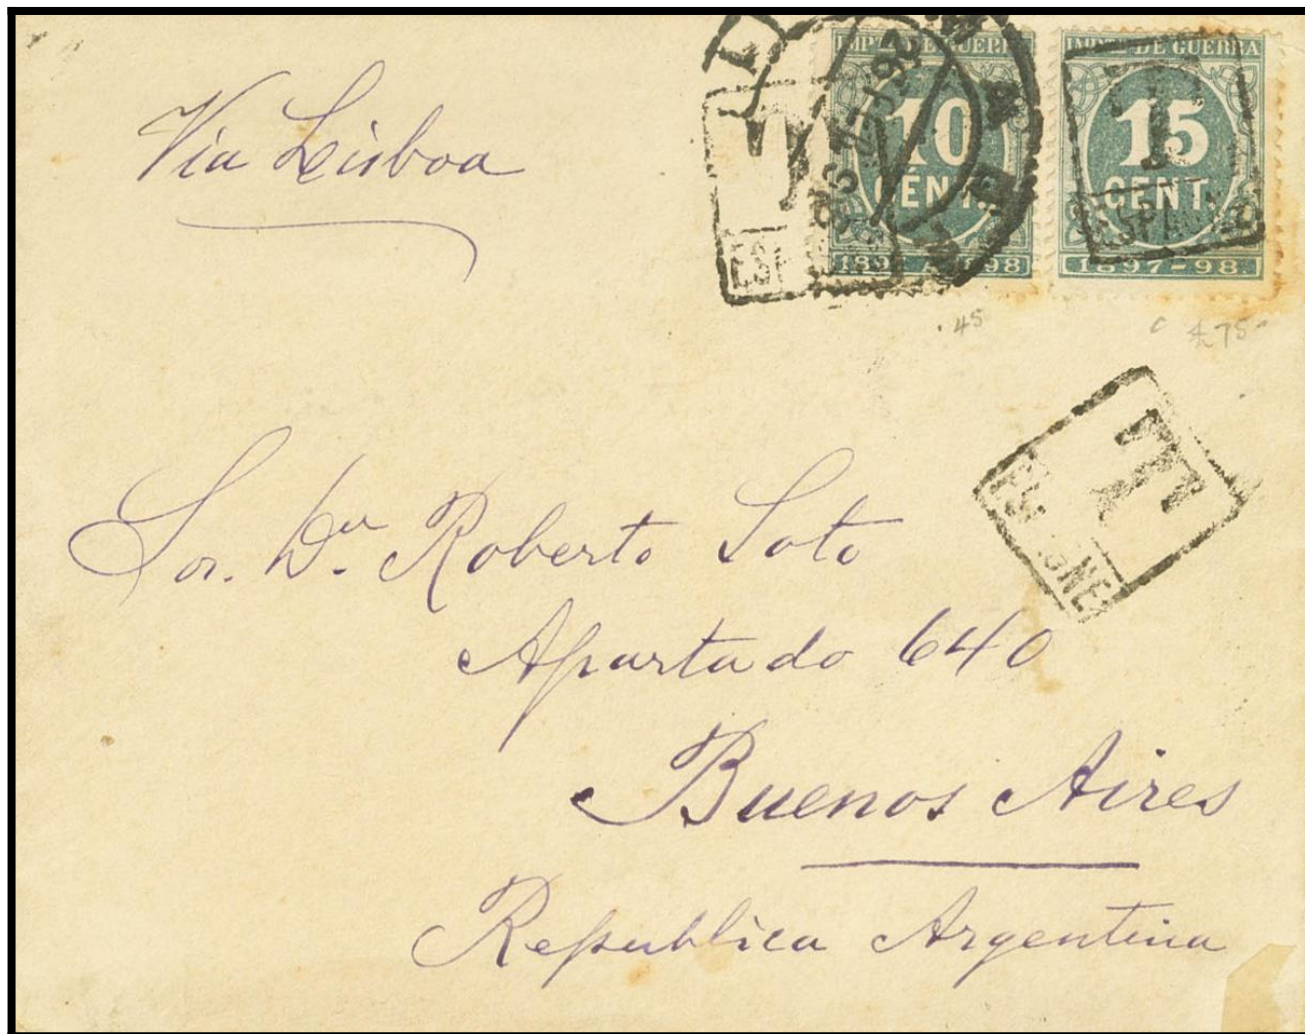 Via Lisboa
IMPTO DE GUERRA
10
CÉNT.
1897-98
IMPTO DE GUERRA
15
CENT.
1897-98
T
T
ESPAGNE
.45
4,75
T
Sor. Dn. Roberto Soto
Apartado 640
Buenos Aires
Republica Argentina